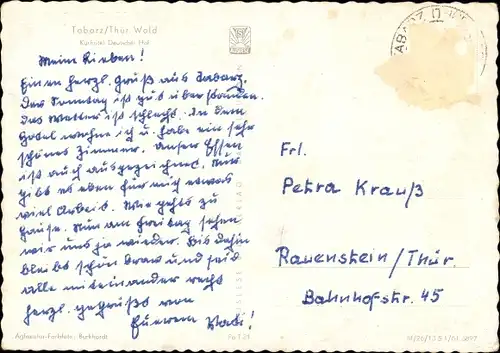 Tabarz/Thür Wald
Kurhotel Deutscher Hof
Meine Lieben!
Einen herzl. Gruß aus Tabarz.
Der Sonntag ist gut überstanden.
Das Wetter ist schlecht. In dem
Hotel wohne ich u. habe ein sehr
schönes Zimmer. Unser Essen
ist auch ausgezeichnet. Nur
gibt es eben für mich etwas
viel Arbeit. Wie gehts zu
Hause. Nun am Freitag sehen
wir uns ja wieder. Bis dahin
bleibt schön brav und seid
alle miteinander recht
herzl. gegrüßt von
Euerem Vati!
Frl.
Petra Krauß
Rauenstein/Thür.
Bahnhofstr. 45
Aghascha-Farbfoto, Burkhardt